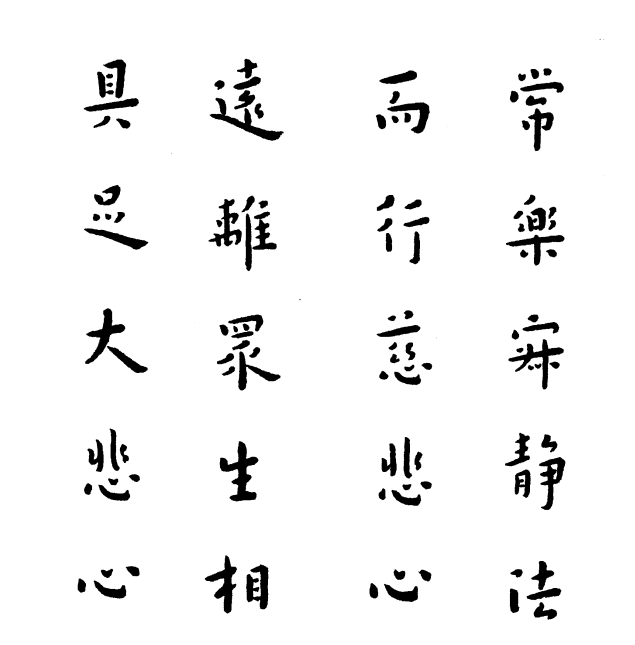 常樂寂靜法
而行慈悲心
遠離眾生相
具足大悲心